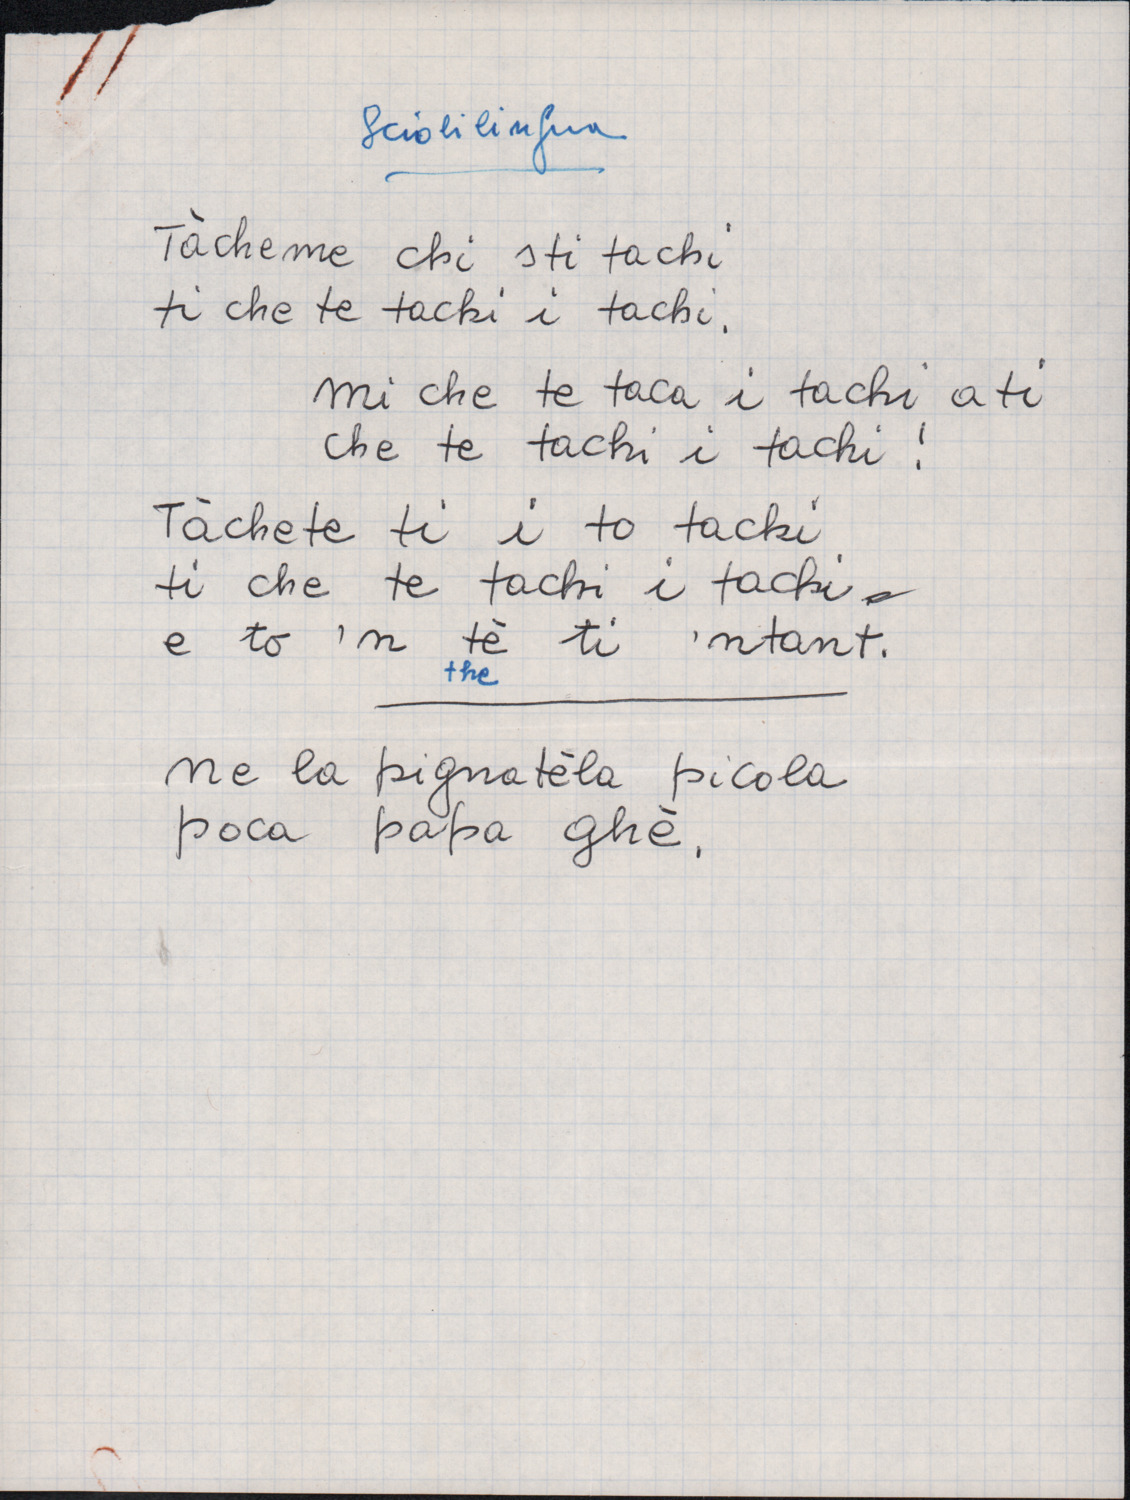 Sciolilingua
Tàcheme chi sti tachi
ti che te tachi i tachi.
Mi che te taca i tachi a ti
che te tachi i tachi!
Tàchete ti i to tachi
ti che te tachi i tachi
e to 'n tè ti 'ntant.
the
Ne la pignatèla picola
poca papa ghè.